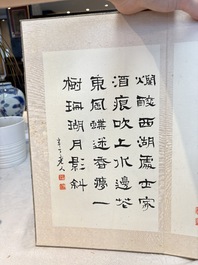 爛醉西湖處士家
酒痕吹上水邊花
東風蝶迷香夢一
樹珊瑚月影斜
老人